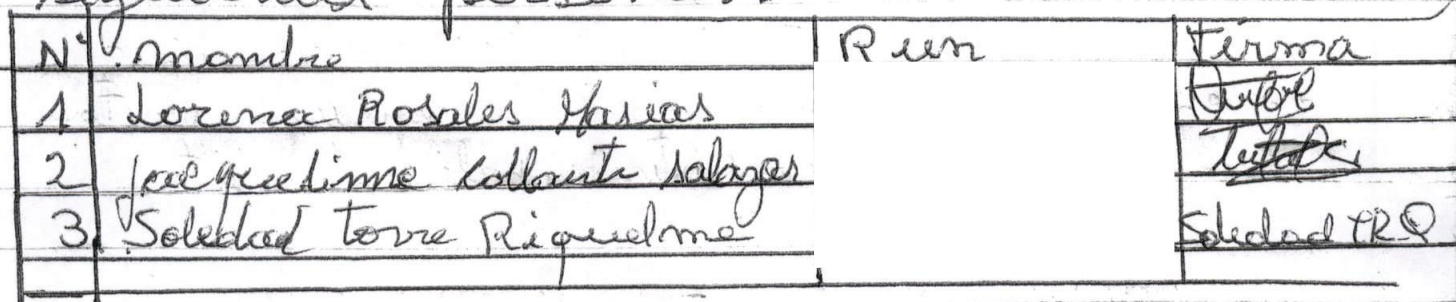 N° Nombre Run Firma
1 Lorena Rosales Masias
2 Jacqueline Collante Salazar
3 Soledad Torre Riquelme Soledad TRQ